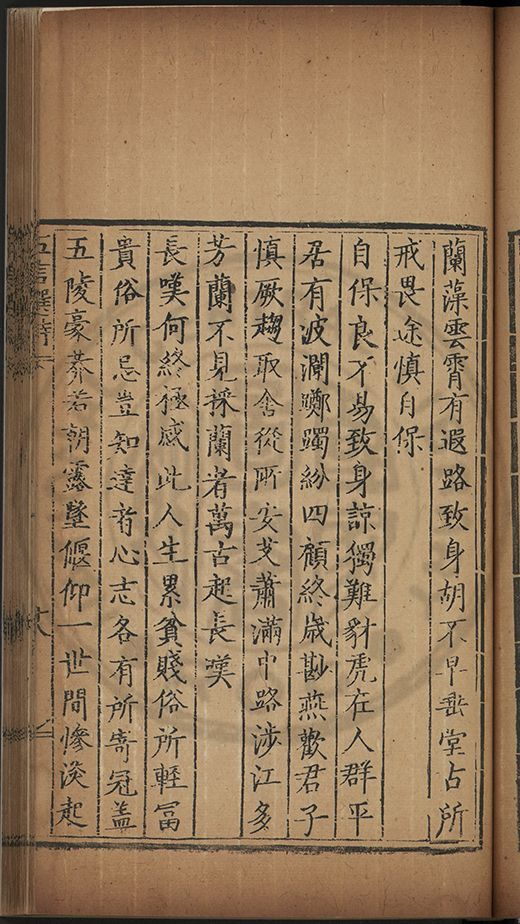 蘭藻雲霄有遐路致身胡不早垂堂占所
戒畏途慎自保
自保良不易致身諒獨難豺虎在人群平
居有波瀾躑躅紛四顧終歳尠燕歡君子
慎厥趨取舍從所安艾蕭滿中路涉江多
芳蘭不見採蘭者萬古起長嘆
長嘆何終極感此人生累貧賤俗所輕冨
貴俗所忌豈知達者心志各有所寄冠盖
五陵豪莽若朝露墜偃仰一世間慘淡起
五言選詩